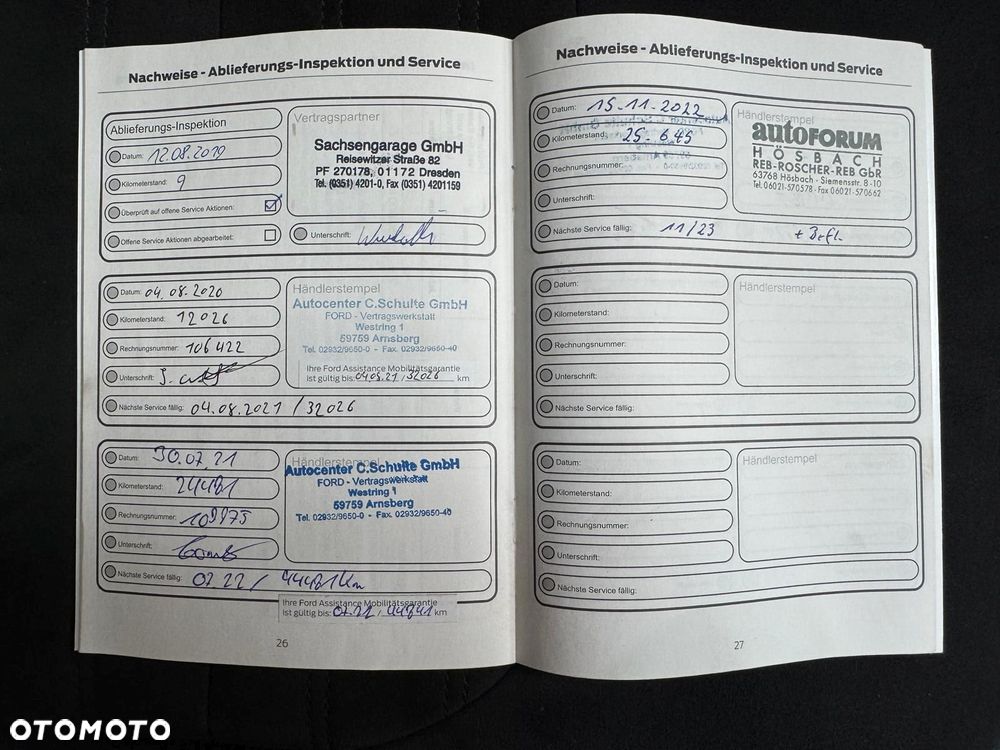 Nachweise - Ablieferungs-Inspektion und Service
Ablieferungs-Inspektion
Datum: 12.08.2019
Kilometerstand: 9
Überprüft auf offene Service Aktionen:
Offene Service Aktionen abgearbeitet:
Vertragspartner
Sachsengarage GmbH
Reisewitzer Straße 82
PF 270178, 01172 Dresden
Tel. (0351) 4201-0, Fax (0351) 4201159
Unterschrift:
Datum: 04.08.2020
Kilometerstand: 12026
Rechnungsnummer: 106422
Unterschrift:
Händlerstempel
Autocenter C.Schulte GmbH
FORD - Vertragswerkstatt
Westring 1
59759 Arnsberg
Tel. 02932/9650-0 - Fax. 02932/9650-40
Ihre Ford Assistance Mobilitätsgarantie
ist gültig bis: 04.08.21 / 32026 km
Nächste Service fällig: 04.08.2021 / 32026
Datum: 30.07.21
Kilometerstand: 24481
Rechnungsnummer: 109975
Unterschrift:
Händlerstempel
Autocenter C.Schulte GmbH
FORD - Vertragswerkstatt
Westring 1
59759 Arnsberg
Tel. 02932/9650-0 - Fax. 02932/9650-40
Nächste Service fällig: 07.22 / 44481 Km
Ihre Ford Assistance Mobilitätsgarantie
ist gültig bis: km
26
Nachweise - Ablieferungs-Inspektion und Service
Datum: 15.11.2022
Kilometerstand: 25.645
Rechnungsnummer:
Unterschrift:
Nächste Service fällig: 11/23
Händlerstempel
autoFORUM
HÖSBACH
REB-ROSCHER-REB GbR
63768 Hösbach - Siemensstr. 8-10
Tel. 06021-570578 - Fax 06021-570662
Datum:
Kilometerstand:
Rechnungsnummer:
Unterschrift:
Händlerstempel
Nächste Service fällig:
Datum:
Kilometerstand:
Rechnungsnummer:
Unterschrift:
Händlerstempel
Nächste Service fällig:
27
OTOMOTO